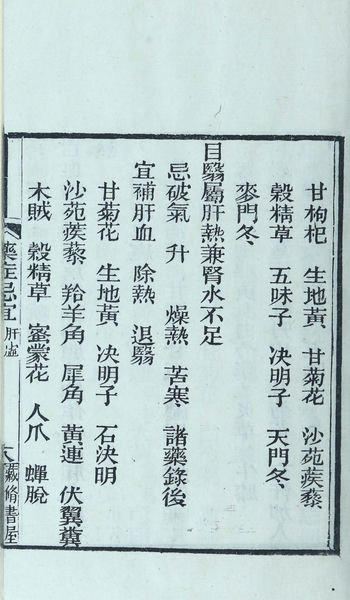 甘枸杞　生地黄　甘菊花　沙苑蒺藜
穀精草　五味子　决明子　天門冬
麥門冬
目翳屬肝熱兼腎水不足
忌破氣　升　燥熱　苦寒　諸藥錄後
宜補肝血　除熱　退翳
甘菊花　生地黄　决明子　石決明
沙苑蒺藜　羚羊角　犀角　黄連　伏翼糞
木賊　穀精草　蜜蒙花　人爪　蟬脫
藥症忌宜　肝虛
六　藏脩書屋